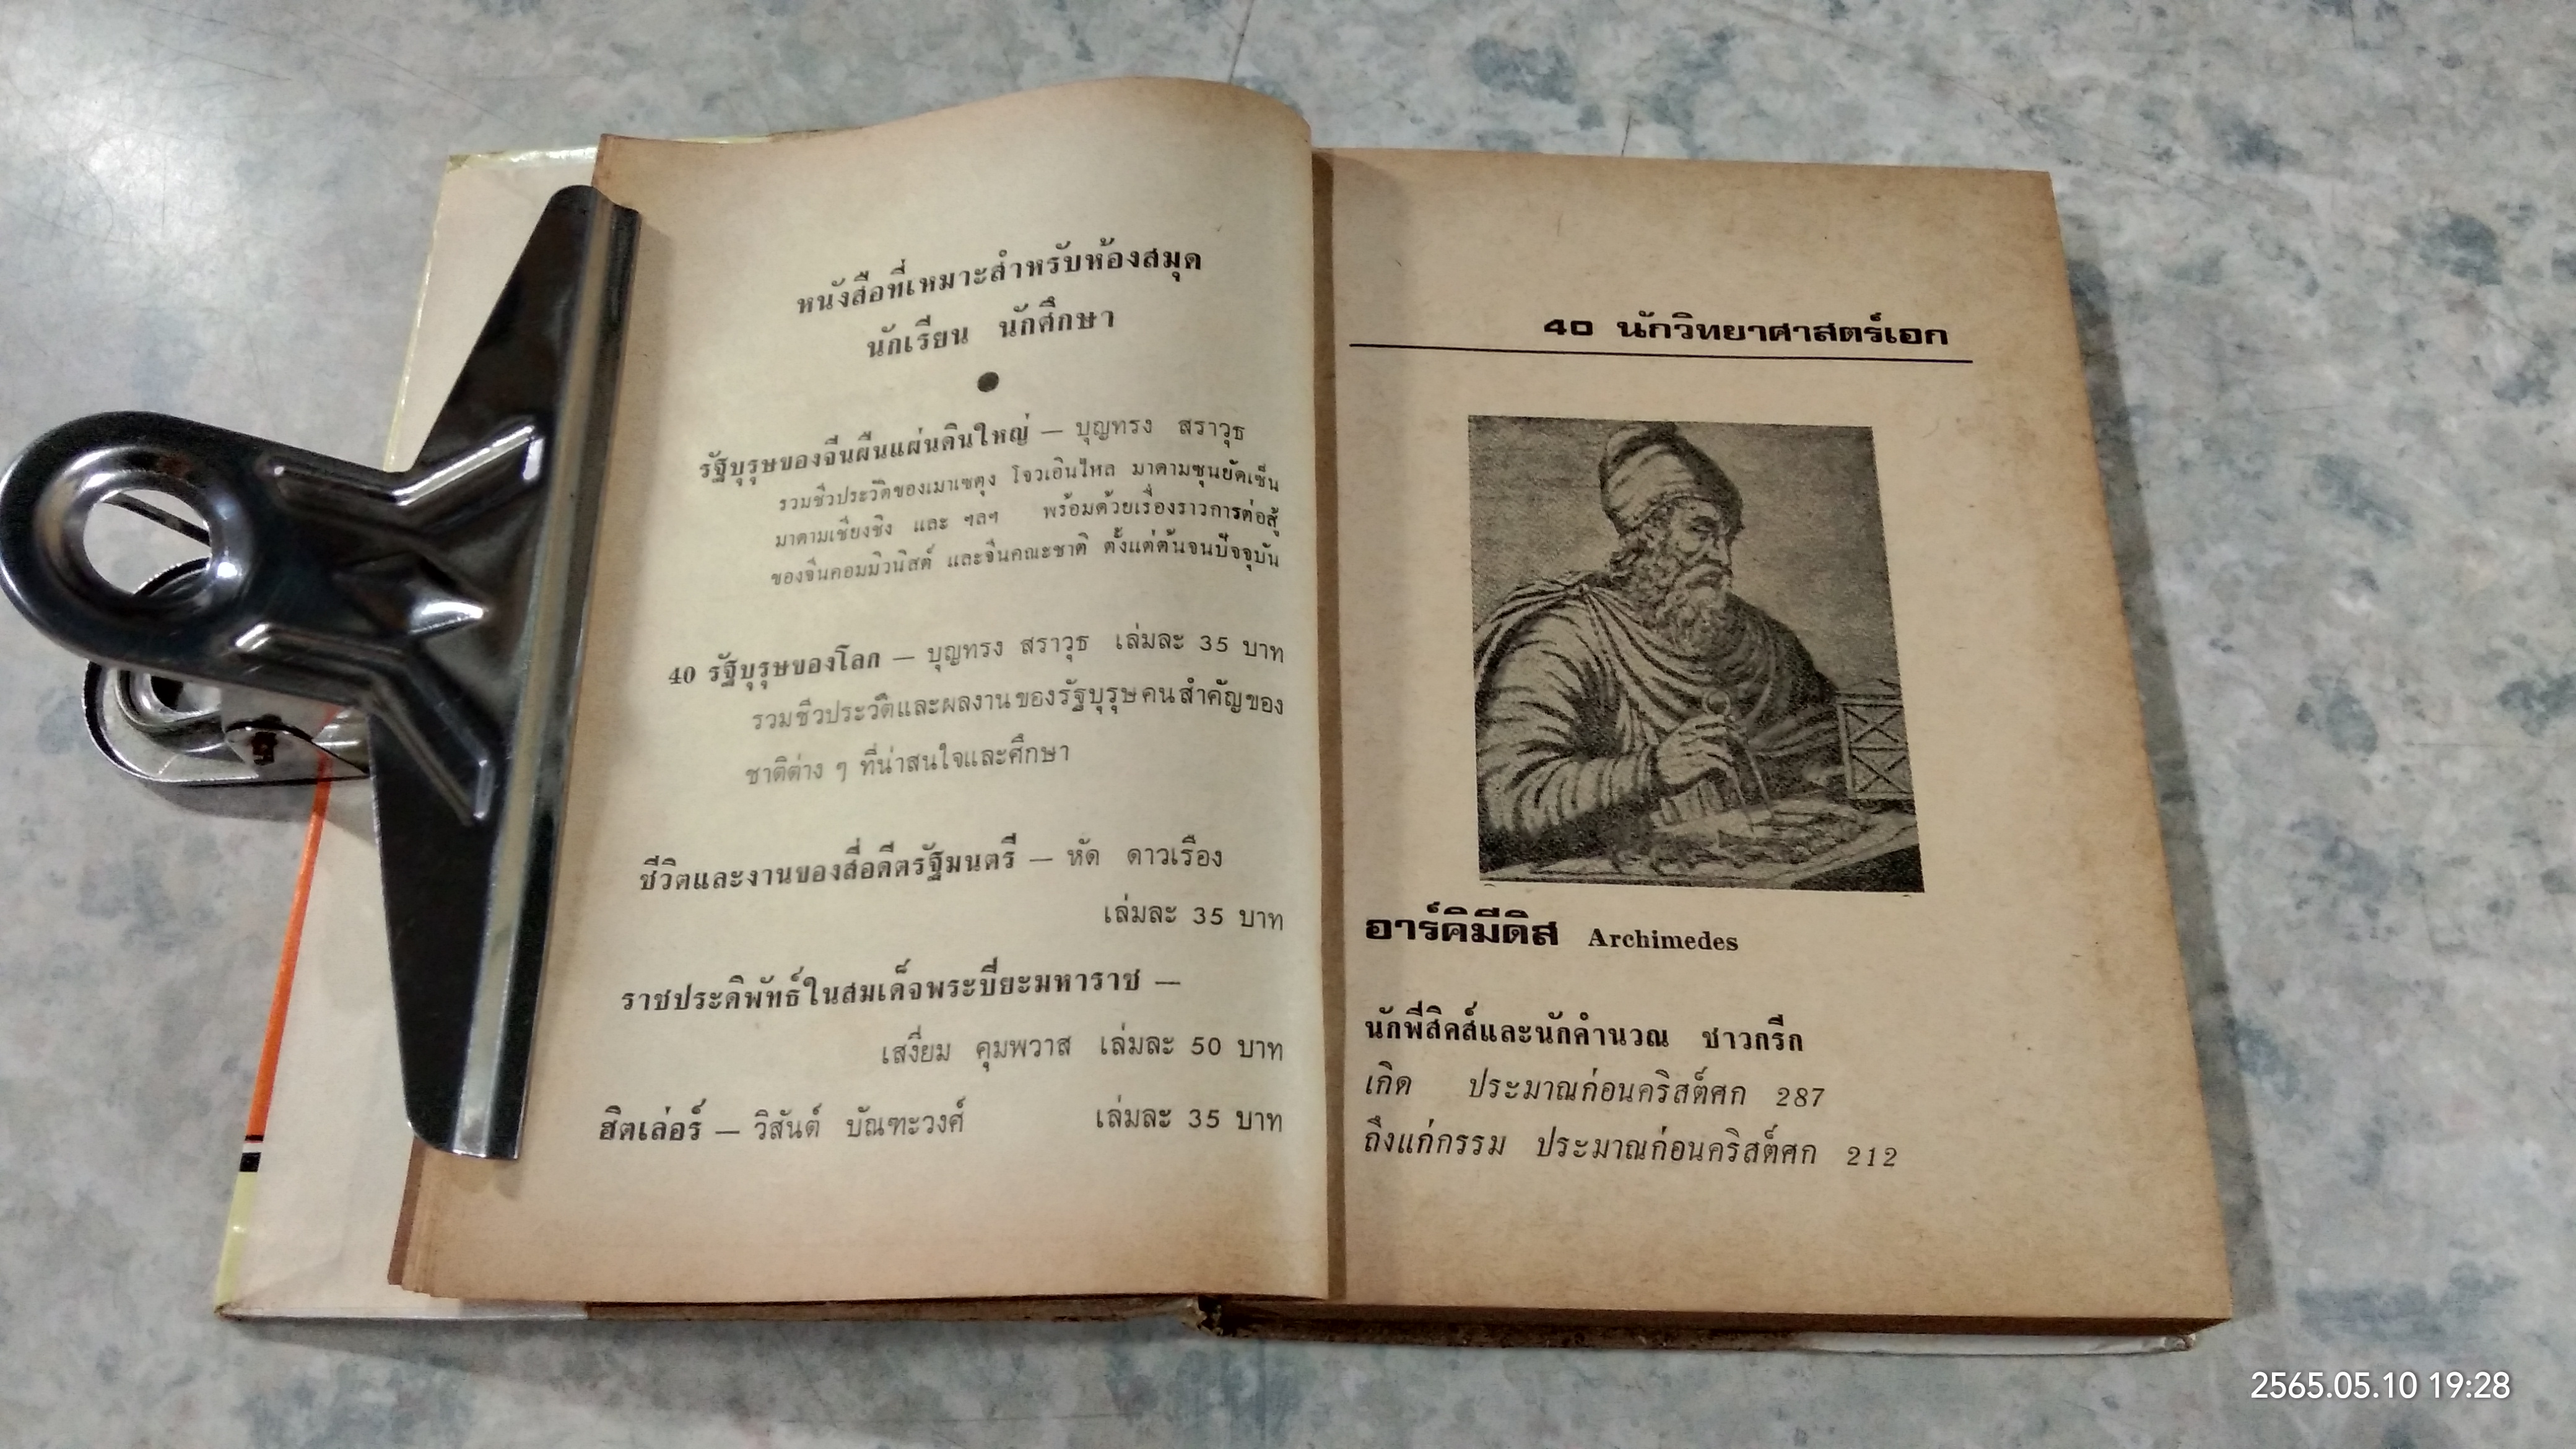 หนังสือที่เหมาะสำหรับห้องสมุด
นักเรียน นักศึกษา
รัฐบุรุษของจีนผืนแผ่นดินใหญ่ — บุญทรง สราวุธ
รวมชีวประวัติของเมาเซตุง โจวเอินไหล มาดามซุนยัดเซ็น
มาดามเชียงชิง และ ฯลฯ พร้อมด้วยเรื่องราวการต่อสู้
ของจีนคอมมิวนิสต์ และจีนคณะชาติ ตั้งแต่ต้นจนปัจจุบัน
40 รัฐบุรุษของโลก — บุญทรง สราวุธ เล่มละ 35 บาท
รวมชีวประวัติและผลงานของรัฐบุรุษคนสำคัญของ
ชาติต่าง ๆ ที่น่าสนใจและศึกษา
ชีวิตและงานของสี่อดีตรัฐมนตรี — หัด ดาวเรือง
เล่มละ 35 บาท
ราชประดิพัทธ์ในสมเด็จพระปิยะมหาราช —
เสงี่ยม คุมพวาส เล่มละ 50 บาท
ฮิตเล่อร์ — วิสันต์ บัณฑะวงศ์ เล่มละ 35 บาท
40 นักวิทยาศาสตร์เอก
อาร์คิมีดิส Archimedes
นักฟีสิคส์และนักคำนวณ ชาวกรีก
เกิด ประมาณก่อนคริสต์ศก 287
ถึงแก่กรรม ประมาณก่อนคริสต์ศก 212
2565.05.10 19:28